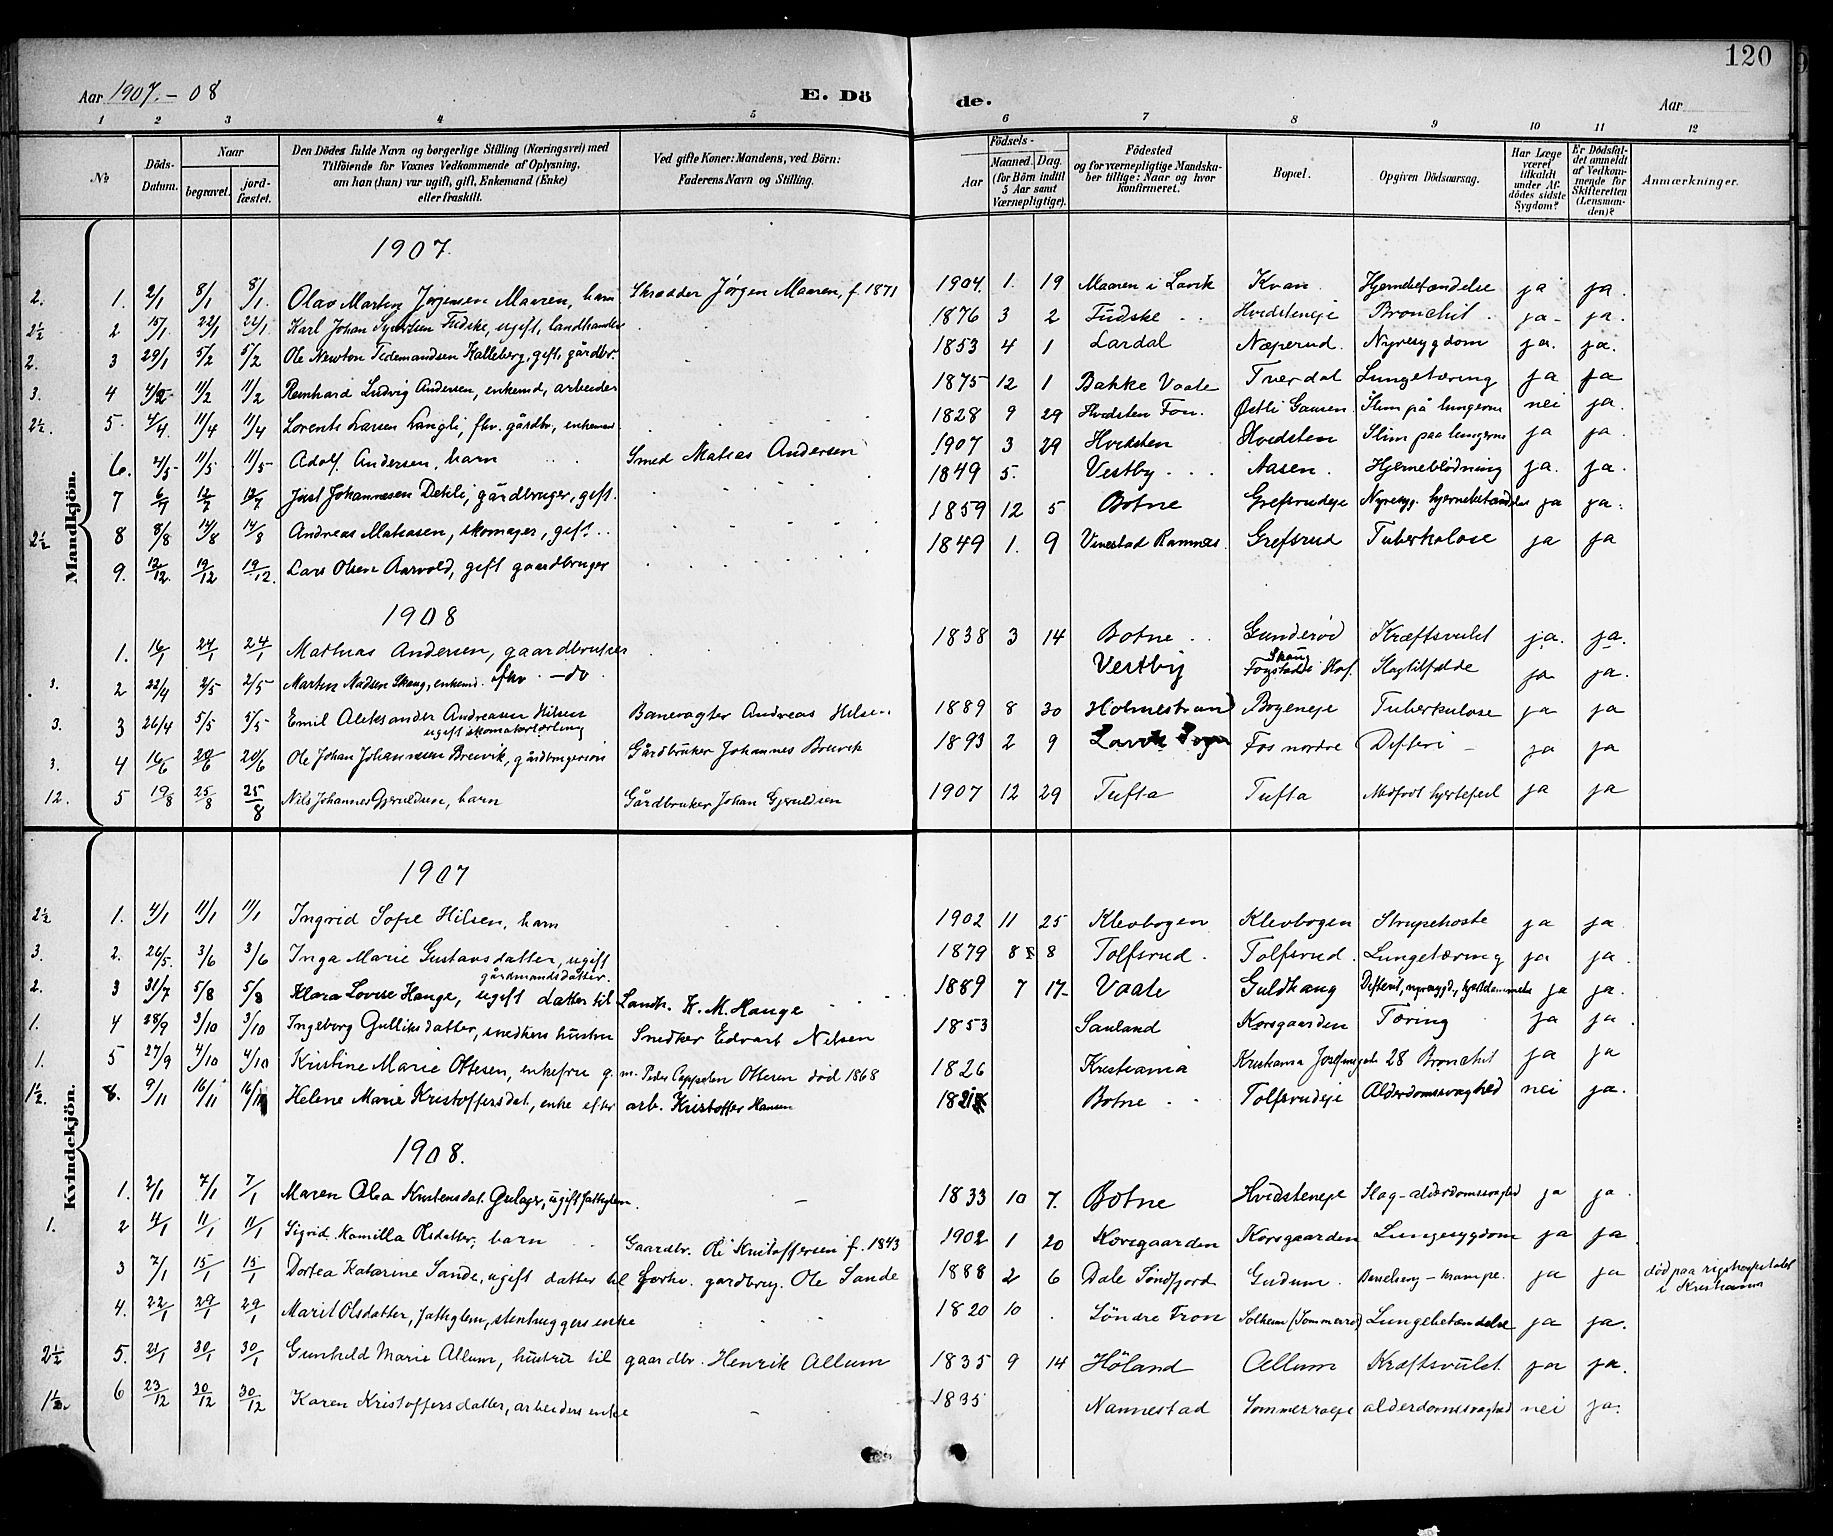 120
Aar 1907.-08
E. Dö de.
Aar
1 2 3 4 5 6 7 8 9 10 11 12
No
Döds-Datum.
Naar
begravet.
jord-fæstet.
Den Dödes fulde Navn og borgerlige Stilling (Næringsvei) med
Tilföiende for Voxnes Vedkommende af Oplysning,
om han (hun) var ugift, gift, Enkemand (Enke)
eller fraskilt.
Ved gifte Koner: Mandens, ved Börn:
Faderens Navn og Stilling.
Födsels-
Aar
Maaned. Dag.
(for Börn indtil
5 Aar samt
Værnepligtige).
Födested
og for værnepligtige Mandska-
ber tillige: Naar og hvor
konfirmeret.
Bopæl.
Opgiven Dödsaarsag.
Har Læge
været
tilkaldt
under Af-
dödes sidste
Sygdom?
Er Dödsfal-
det anmeldt
af Vedkom-
mende for
Skifteretten
(Lensman-
den)?
Anmærkninger.
Mandkjön.
1907.
2. 1. 2/1 8/1 8/1. Olav Martin Jørgensen Maaren, barn Skrædder Jørgen Maaren, f. 1871 1904. 1. 19 Maaren i Lavik Kvan Hjernebetændelse ja ja.
2½ 2 15/1 22/1 22/1 Karl Johan Syvertsen Fudske, ugift, landhandler 1876 3 2 Fudske Hvidsteneje Bronchit ja ja.
2. 3 29/1 5/2 5/2 Ole Newton Tidemandsen Kalleberg, gift, gårdbr. 1853 4 1 Lardal Næperud. Nyresygdom ja. ja.
3. 4 4/2 11/2 11/2 Reinhard Ludvig Andersen, enkemd, arbeider 1875 12 1 Bakke Vaale Tverdal Lungetæring ja ja
2½. 5. 4/4. 11/4 11/4 Lorents Larsen Langli, fhv. gårdbr, enkemd 1828 9 29 Hvidsten Fon. Østli Gausen. Slim på lungerne nei ja.
6. 4/5 11/5 11/5 Adolf Andersen, barn Smed Matias Andersen 1907 3 29 Hvidsten Hvidsten Slim paa lungerne ja ja.
7 6/7 12/7 12/7 Johannesen Dehli, gårdbruger, gift. 1849 5. Vestby Aasen. Hjerneblödning ja. ja.
2½ 8 8/8 14/8 14/8 Andreas Matiasen, skomager, gift 1859 12 5 Botne Grefsrudeje Nyresyg. hjernebetændelse ja ja.
9. 12/12. 19/12 19/12. Lars Olsen Aarvold, gift gaardbruger 1849 1. 9 Vinestad Ramnes. Grefsrud Tuberkulose ja ja
1908
1. 16/1 24/1 24/1 Mathias Andersen, gaardbruker 1838 3 14 Botne Gunderød Kræftsvulst ja. ja.
3. 2 22/4 2/5 2/5 Martin Madsen Skaug, enkemd. fhv. - do Vestby Skaug Slagtilfælde ja ja.
3. 3 26/4 5/5 5/5 Emil Aleksander Andreasen Hilsen Banevagter Andreas Hilsen 1889 8 30 Holmestrand Bogeneje Tuberkulose ja ja
ugift skomakerlærling
3. 4 16/6 20/6 20/6 Ole Johan Johannesen Breivik, gårdbrugersön Gårdbruker Johannes Breivik 1893 2 9 Fos nordre Difteri ja ja
12. 5 19/8 25/8 25/8 Nils Johannes Gjeruldsen, barn Gårdbruker Johan Gjeruldsen 1907 12 29 Tufta Tufta Medfødt hjertefeil ja ja
Kvindekjön.
1907
2½ 1. 4/1 11/1 11/1 Ingrid Sofie Hilsen, barn 1902 11 25 Klevbogen Klevbogen Strupehoste ja ja
3. 2. 26/5. 3/6 3/6 Inga Marie Gustavsdatter, ugift 1879 8 8 Tolfsrud. Tolfsrud. Lungetæring ja ja.
gårdmandsdatter.
2. 3 31/7 5/8 5/8 Klara Lovise Hauge, ugift datter til Landh. K. M. Hauge 1889 7 17 Vaale Guldhaug Difterit, nyresygd., ja ja.
1. 4 28/9 3/10 3/10 Ingeborg Gulliksdatter, snedkers hustru Snedker Edvart Nilsen 1853 Sauland Korsgaarden Tæring ja ja
1. 5 27/9 4/10 4/10 Kristine Marie Ottesen, enkefru g. m. Peder Cappelen Ottesen død 1868 1826 Kristiania Kristiania Josefinegade 28 Bronchit ja ja
1½. 6. 9/11 16/11 16/11 Helene Marie Kristoffersdat, enke efter arb. Kristoffer Hansen Botne Tolfsrudeje Alderdomssvaghed nei ja.
1908.
1. 2/1 7/1 7/1 Maren Olea Kristensdat. Gulager, ugift fattiglem. 1833 10 7. Botne Hvidsteneje Slag-alderdomssvaghed ja ja
1. 2 4/1 11/1 11/1 Sigrid Kamilla Olsdatter, barn Gaardbr. Ole Kristoffersen f. 1843 1902 1 20 Korsgaarden Korsgaarden Lungesygdom ja ja
3 7/1 15/1 15/1 Dortea Katarine Sande, ugift datter til Forhv. gardbrug. Ole Sande 1888 2 6 Dale Söndfjord Gudum. krampe. ja ja död paa rigshospitalet
i Kristiania
4. 22/1 29/1 29/1 Marit Olsdatter, fattiglem, stenhuggers enke 1820 10 Söndre Fron Solheim (Sommerrød) Lungebetændelse ja ja.
2½ 5. 21/1 30/1 30/1 Gunhild Marie Allum, hustru til gaardbr. Henrik Allum 1835 9 14 Höland Allum Kræftsvulst ja ja.
1½. 6 23/12 30/12 30/12 Karen Kristoffersdatter, arbeiders enke 1835 Nannestad Sommerrøeje alderdomssvaghed nei ja.